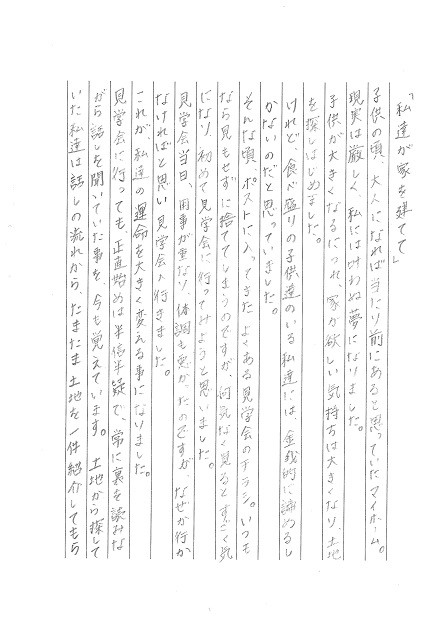 「私達が家を建てて」
子供の頃、大人になれば当たり前にあると思っていたマイホーム。
現実は厳しく、私には叶わぬ夢になりました。
子供が大きくなるにつれ、家が欲しい気持ちは大きくなり、土地
を探しはじめました。
けれど、食べ盛りの子供達のいる私達には、金銭的に諦めるし
かないのだと思っていました。
そんな頃、ポストに入ってきたよくある見学会のチラシ。いつも
なら見もせずに捨ててしまうのですが、何気なく見るとすごく気
になり、初めて見学会に行ってみようと思いました。
見学会当日、用事が重なり、体調も悪かったのですが、なぜか行か
なければと思い見学会へ行きました。
これが、私達の運命を大きく変える事になりました。
見学会に行っても、正直始めは半信半疑で、常に裏を読みな
がら話しを聞いていた事を、今も覚えています。土地から探して
いた私達は話しの流れから、たまたま土地を一件紹介してもら